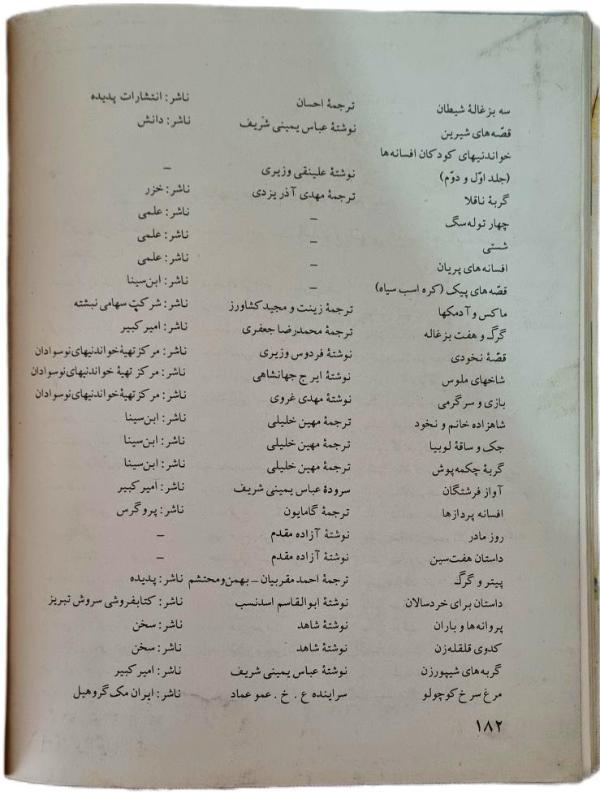 سه بزغالهٔ شیطان ترجمهٔ احسان ناشر: انتشارات پدیده
قصّه‌های شیرین نوشتهٔ عباس یمینی شریف ناشر: دانش
خواندنیهای کودکان افسانه‌ها
(جلد اوّل و دوّم) نوشتهٔ علینقی وزیری –
گربهٔ ناقلا ترجمهٔ مهدی آذریزدی ناشر: خزر
چهار توله‌سگ – ناشر: علمی
شستی – ناشر: علمی
افسانه‌های پریان – ناشر: علمی
قصّه‌های پیک (کره اسب سیاه) – ناشر: ابن‌سینا
ماکس و آدمکها ترجمهٔ زینت و مجید کشاورز ناشر: شرکت سهامی نبشته
گرگ و هفت بزغاله ترجمهٔ محمدرضا جعفری ناشر: امیرکبیر
قصّهٔ نخودی نوشتهٔ فردوس وزیری ناشر: مرکز تهیهٔ خواندنیهای نوسوادان
شاخهای ملوس نوشتهٔ ایرج جهانشاهی ناشر: مرکز تهیهٔ خواندنیهای نوسوادان
بازی و سرگرمی نوشتهٔ مهدی غروی ناشر: مرکز تهیهٔ خواندنیهای نوسوادان
شاهزاده خانم و نخود ترجمهٔ مهین خلیلی ناشر: ابن‌سینا
جک و ساقهٔ لوبیا ترجمهٔ مهین خلیلی ناشر: ابن‌سینا
گربهٔ چکمه‌پوش ترجمهٔ مهین خلیلی ناشر: ابن‌سینا
آواز فرشتگان سرودهٔ عباس یمینی شریف ناشر: امیرکبیر
افسانه پردازها ترجمهٔ گامایون ناشر: پروگرس
روز مادر نوشتهٔ آزاده مقدم –
داستان هفت‌سین نوشتهٔ آزاده مقدم –
پیتر و گرگ ترجمهٔ احمد مقربیان – بهمن‌ومحتشم ناشر: پدیده
داستان برای خردسالان نوشتهٔ ابوالقاسم اسدنسب ناشر: کتابفروشی سروش تبریز
پروانه‌ها و باران نوشتهٔ شاهد ناشر: سخن
کدوی قلقله‌زن نوشتهٔ شاهد ناشر: سخن
گربه‌های شیپورزن نوشتهٔ عباس یمینی شریف ناشر: امیرکبیر
مرغ سرخ کوچولو سراینده ع . خ . عمو عماد ناشر: ایران مک‌گروهیل
۱۸۲